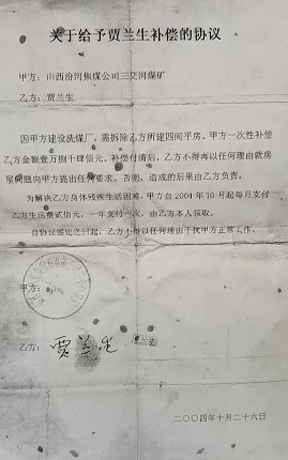 关于给予贾兰生补偿的协议
甲方：山西汾河焦煤公司三交河煤矿
乙方：贾兰生
因甲方建设洗煤厂，需拆除乙方所建四间平房，甲方一次性补偿
乙方金额壹万捌千肆佰元。补偿付清后，乙方不得再以任何理由就房
屋问题向甲方提出任何要求。否则，造成的后果由乙方负责。
为解决乙方身体残疾生活困难，甲方自 2004 年 10 月起每月支付
乙方生活费贰佰元，一年支付一次，由乙方本人领取。
自协议签定之日起，乙方不得以任何理由干扰甲方正常工作。
甲方：
乙方：贾兰生
二〇〇四年十月二十六日